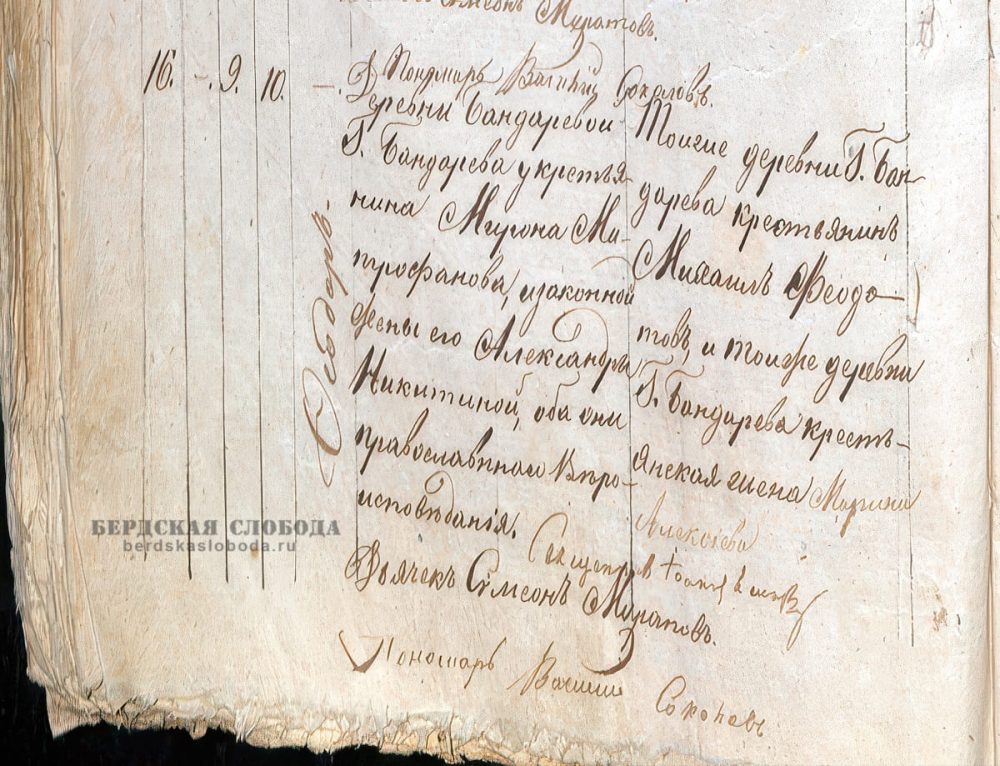 Симеонъ Муратовъ.
Пономарь Василий Соколовъ.
16. - 9. 10. -
Ѳеодоръ.
Деревни Бандаревой
Г. Бандарева у крестья-
нина Мирона Ми-
трофанова, изаконной
жены его Александры
Никитиной, оба они
православнаго Вѣро-
исповѣданія.
Тоиже деревни Г. Бан-
дарева крестьянинъ
Михаилъ Феодо-
товъ, и тоиже деревни
Г. Бандарева кресть-
янская жена Марина
Алексеева
Священник Иоанн
Дьячекъ Симеонъ Муратовъ.
Пономарь Василий Соколовъ
БЕРДСКАЯ СЛОБОДА
berdskasloboda.ru